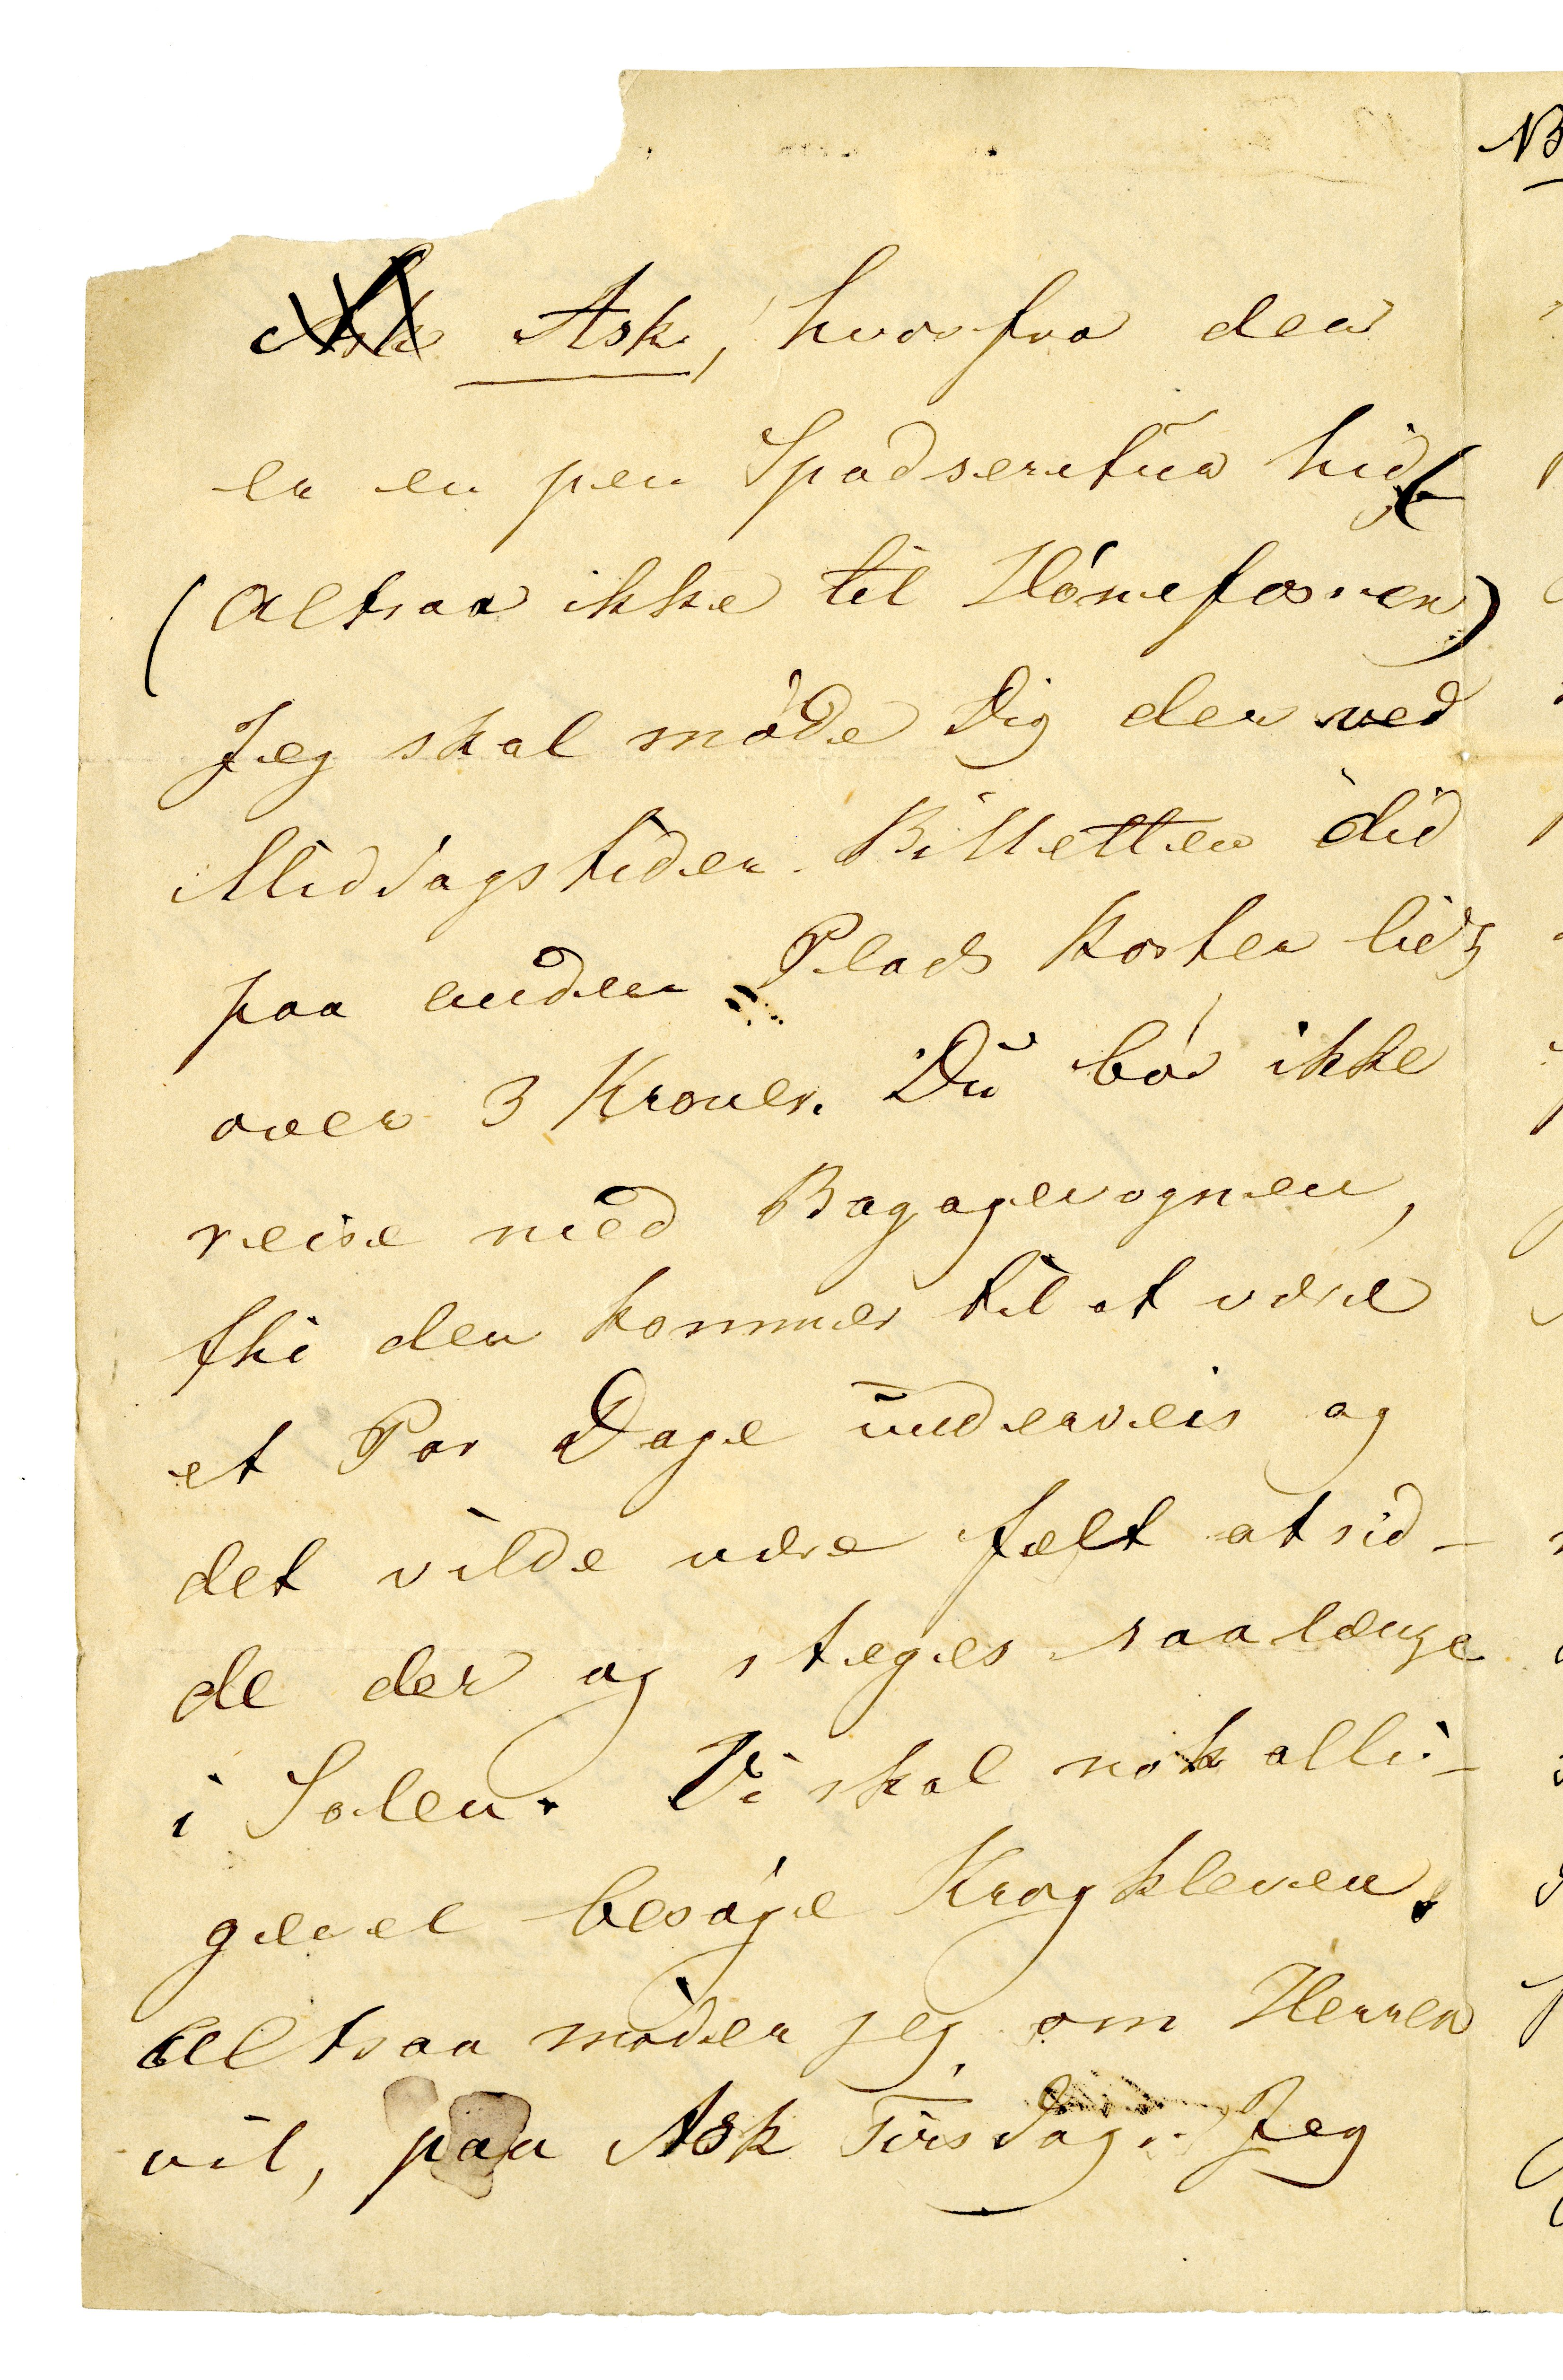 NB
Ask Ask, hvorfra der
er en pen Spadseretur hid
(Altsaa ikke til Hønefossen)
Jeg skal møde Dig der ved
Middagstider. Billetten did
paa anden Plads koster lidt
over 3 Kroner. Du bør ikke
reise med Bagagevognen,
thi den kommer til at være
et Par Dage underveis og
det vilde være fælt at sid-
de der og steges saa længe
i Solen. Vi skal nok alli-
gevel besøge Krogkleven.
Altsaa møder jeg, om Herren
vil, paa Ask Tirsdag. Jeg